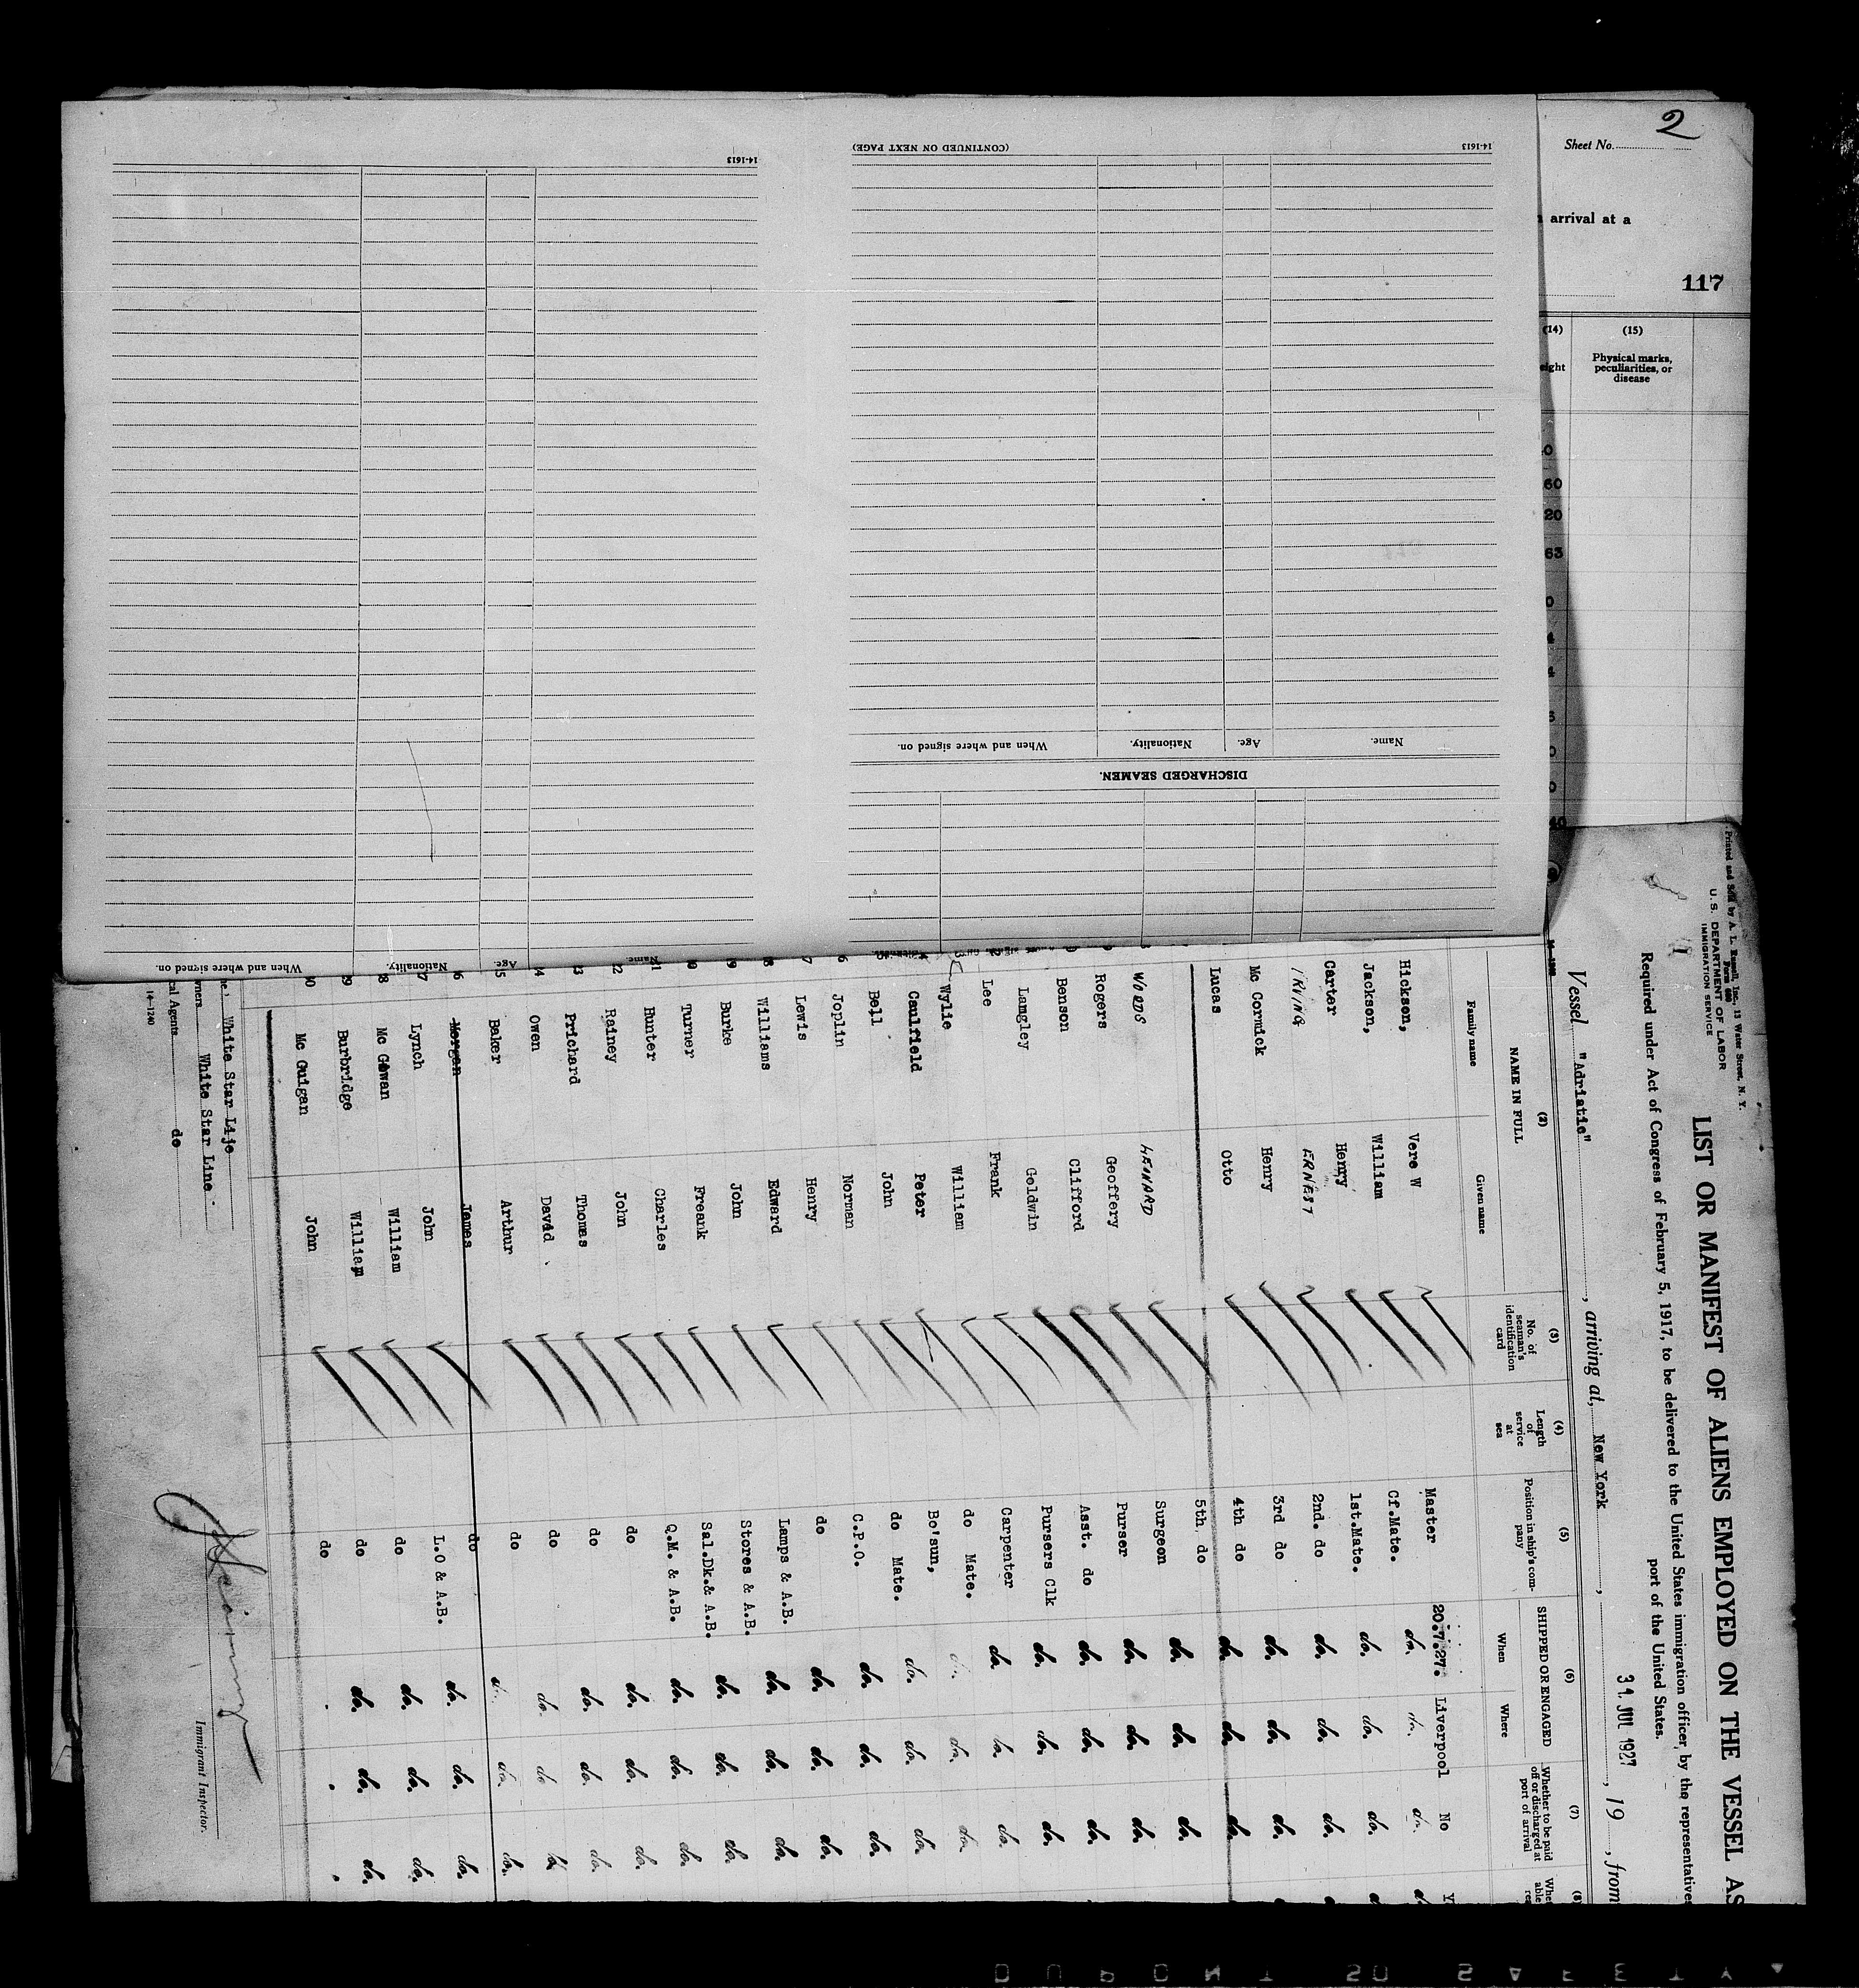 2
Sheet No.
arrival at a
117
(14) (15)
Physical marks, peculiarities, or disease
60
20
63
40
14-1613
(CONTINUED ON NEXT PAGE)
14-1613
DISCHARGED SEAMEN.
Name. Age. Nationality. When and where signed on.
Name. Age. Nationality. When and where signed on.
Printed and Sold by A. L. Russell, Inc., 13 Water Street, N. Y.
U. S. DEPARTMENT OF LABOR
IMMIGRATION SERVICE
LIST OR MANIFEST OF ALIENS EMPLOYED ON THE VESSEL AS
Required under Act of Congress of February 5, 1917, to be delivered to the United States immigration officer by the representatives
port of the United States.
Vessel "Adriatic", arriving at, New York, 31. JUL 1927, 19, from
(2) (3) (4) (5) (6) (7) (8)
NAME IN FULL
Family name Given name
No. of seaman's identification card
Length of service at sea
Position in ship's company
SHIPPED OR ENGAGED
When Where
Whether to be paid off or discharged at port of arrival
Hickson, Vere W Master 20.7.27. Liverpool No
Jackson, William Cf.Mate. do. do. do.
Carter Henry 1st.Mate. do. do. do.
IRVING ERNEST 2nd. do do. do. do.
Mc Cormick Henry 3rd do do. do. do.
Lucas Otto 4th do do. do. do.
5th do do. do. do.
WOODS LEONARD Surgeon do. do. do.
Rogers Geoffery Purser do. do. do.
Benson Clifford Asst. do do. do. do.
Langley Goldwin Pursers Clk do. do. do.
Lee Frank Carpenter do. do. do.
Wylie William do Mate. do. do. do.
Caulfield Peter Bo'sun, do. do. do.
Bell John do Mate. do. do. do.
Joplin Norman C.P.O. do. do. do.
Lewis Henry do do. do. do.
Williams Edward Lamps & A.B. do. do. do.
Burke John Stores & A.B. do. do. do.
Turner Freank Sal.Dk.& A.B. do. do. do.
Hunter Charles Q.M. & A.B. do. do. do.
Rainey John do do. do. do.
Prichard Thomas do do. do. do.
Owen David do do. do. do.
Baker Arthur do do. do. do.
Morgan James do
Lynch John L.O & A.B. do. do. do.
Mc Gowan William do do. do. do.
Burbridge William do
Mc Guigan John do
White Star Lije
White Star Line
cal Agents do
14-1240
Immigrant Inspector.